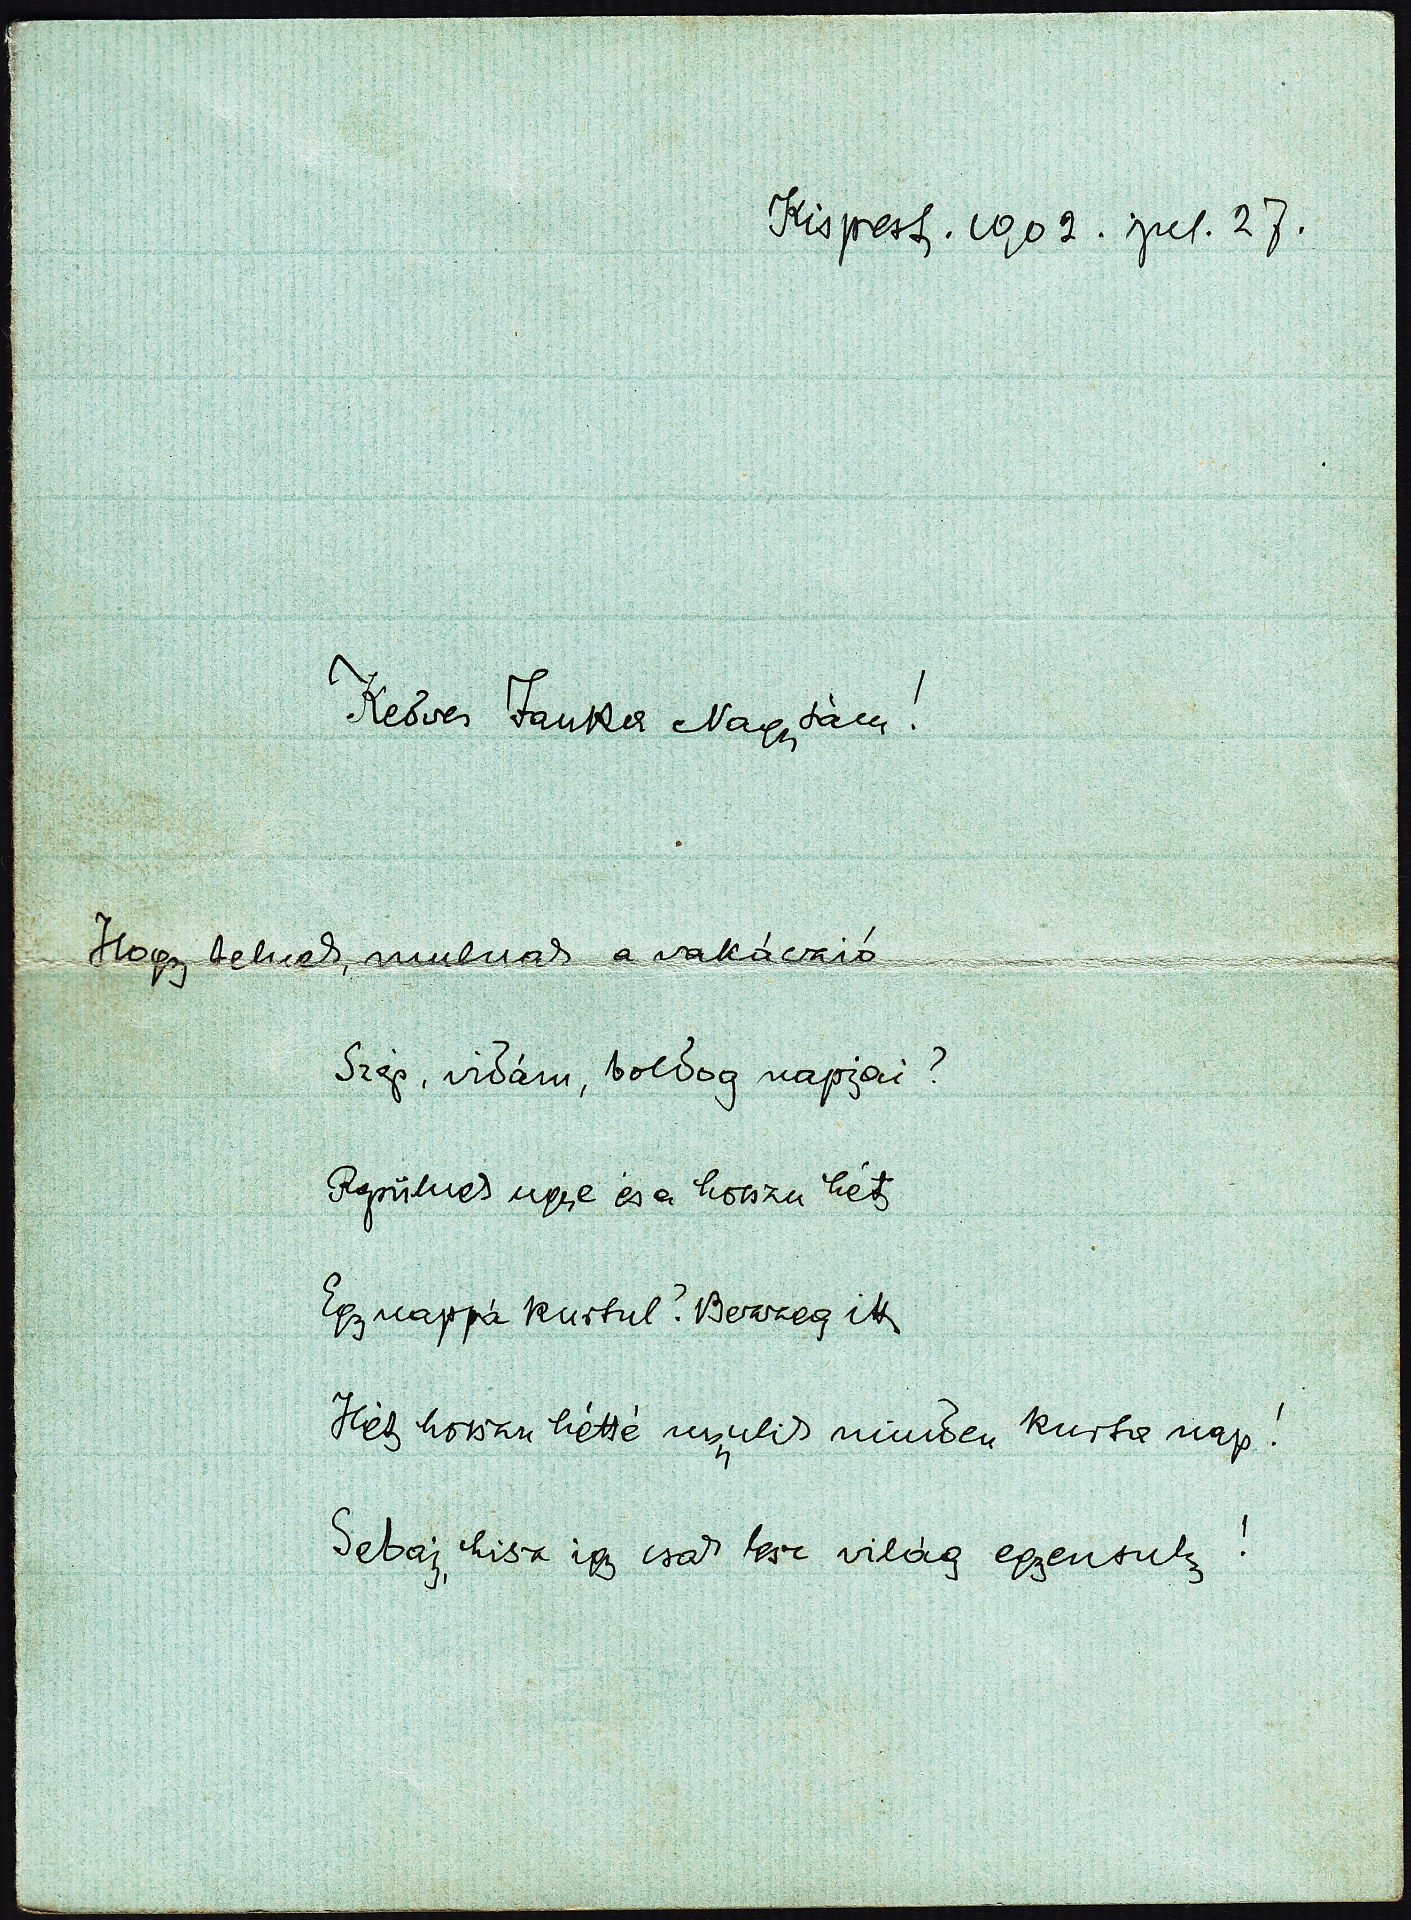 Kispest. 1902. jul. 27.
Kedves Janka Nagysám!
Hogy telnek, mulnak a vakáczió
Szép, vidám, boldog napjai?
Repülnek ugye és a hosszu hét
Egy nappá kurtul? Bezzeg itt
Hét hosszu hétté nyulik minden kurta nap!
Sebaj, hisz igy csak lesz világ egyensuly!